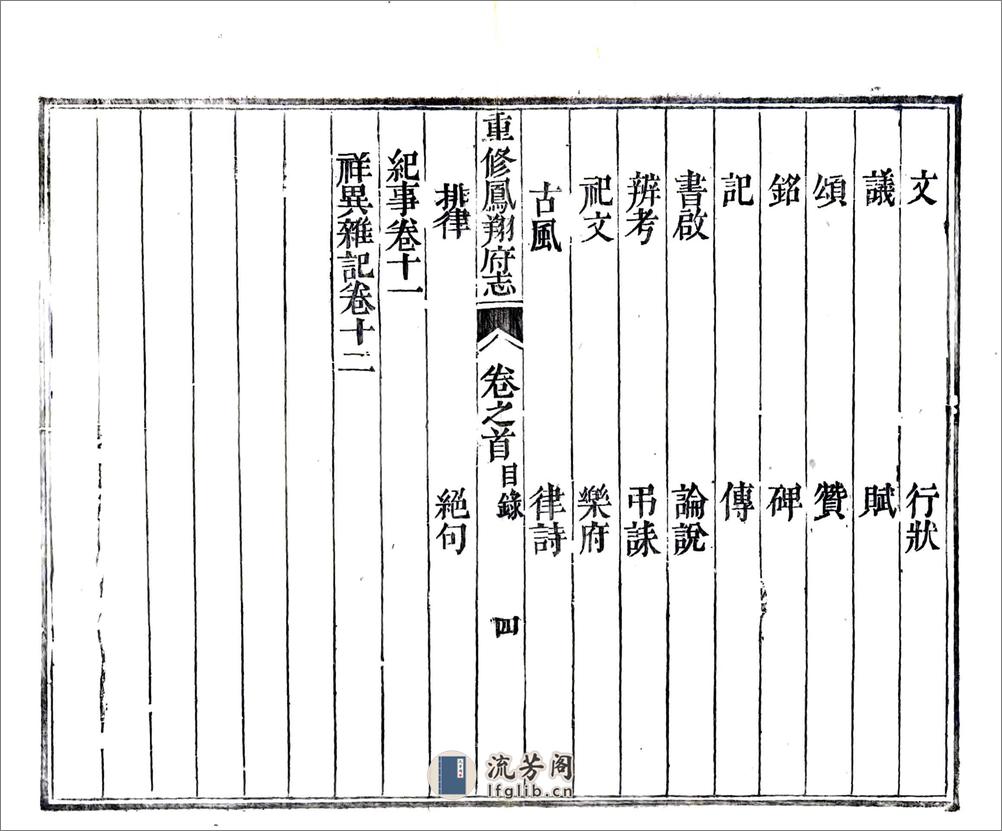 文　行狀
議　賦
頌　贊
銘　碑
記　傳
書啟　論說
辨考　弔誄
祀文　樂府
古風　律詩
重修鳳翔府志　卷之首　目錄　四
排律　絕句
紀事卷十一
祥異雜記卷十二
流芳阁
lfglib.cn